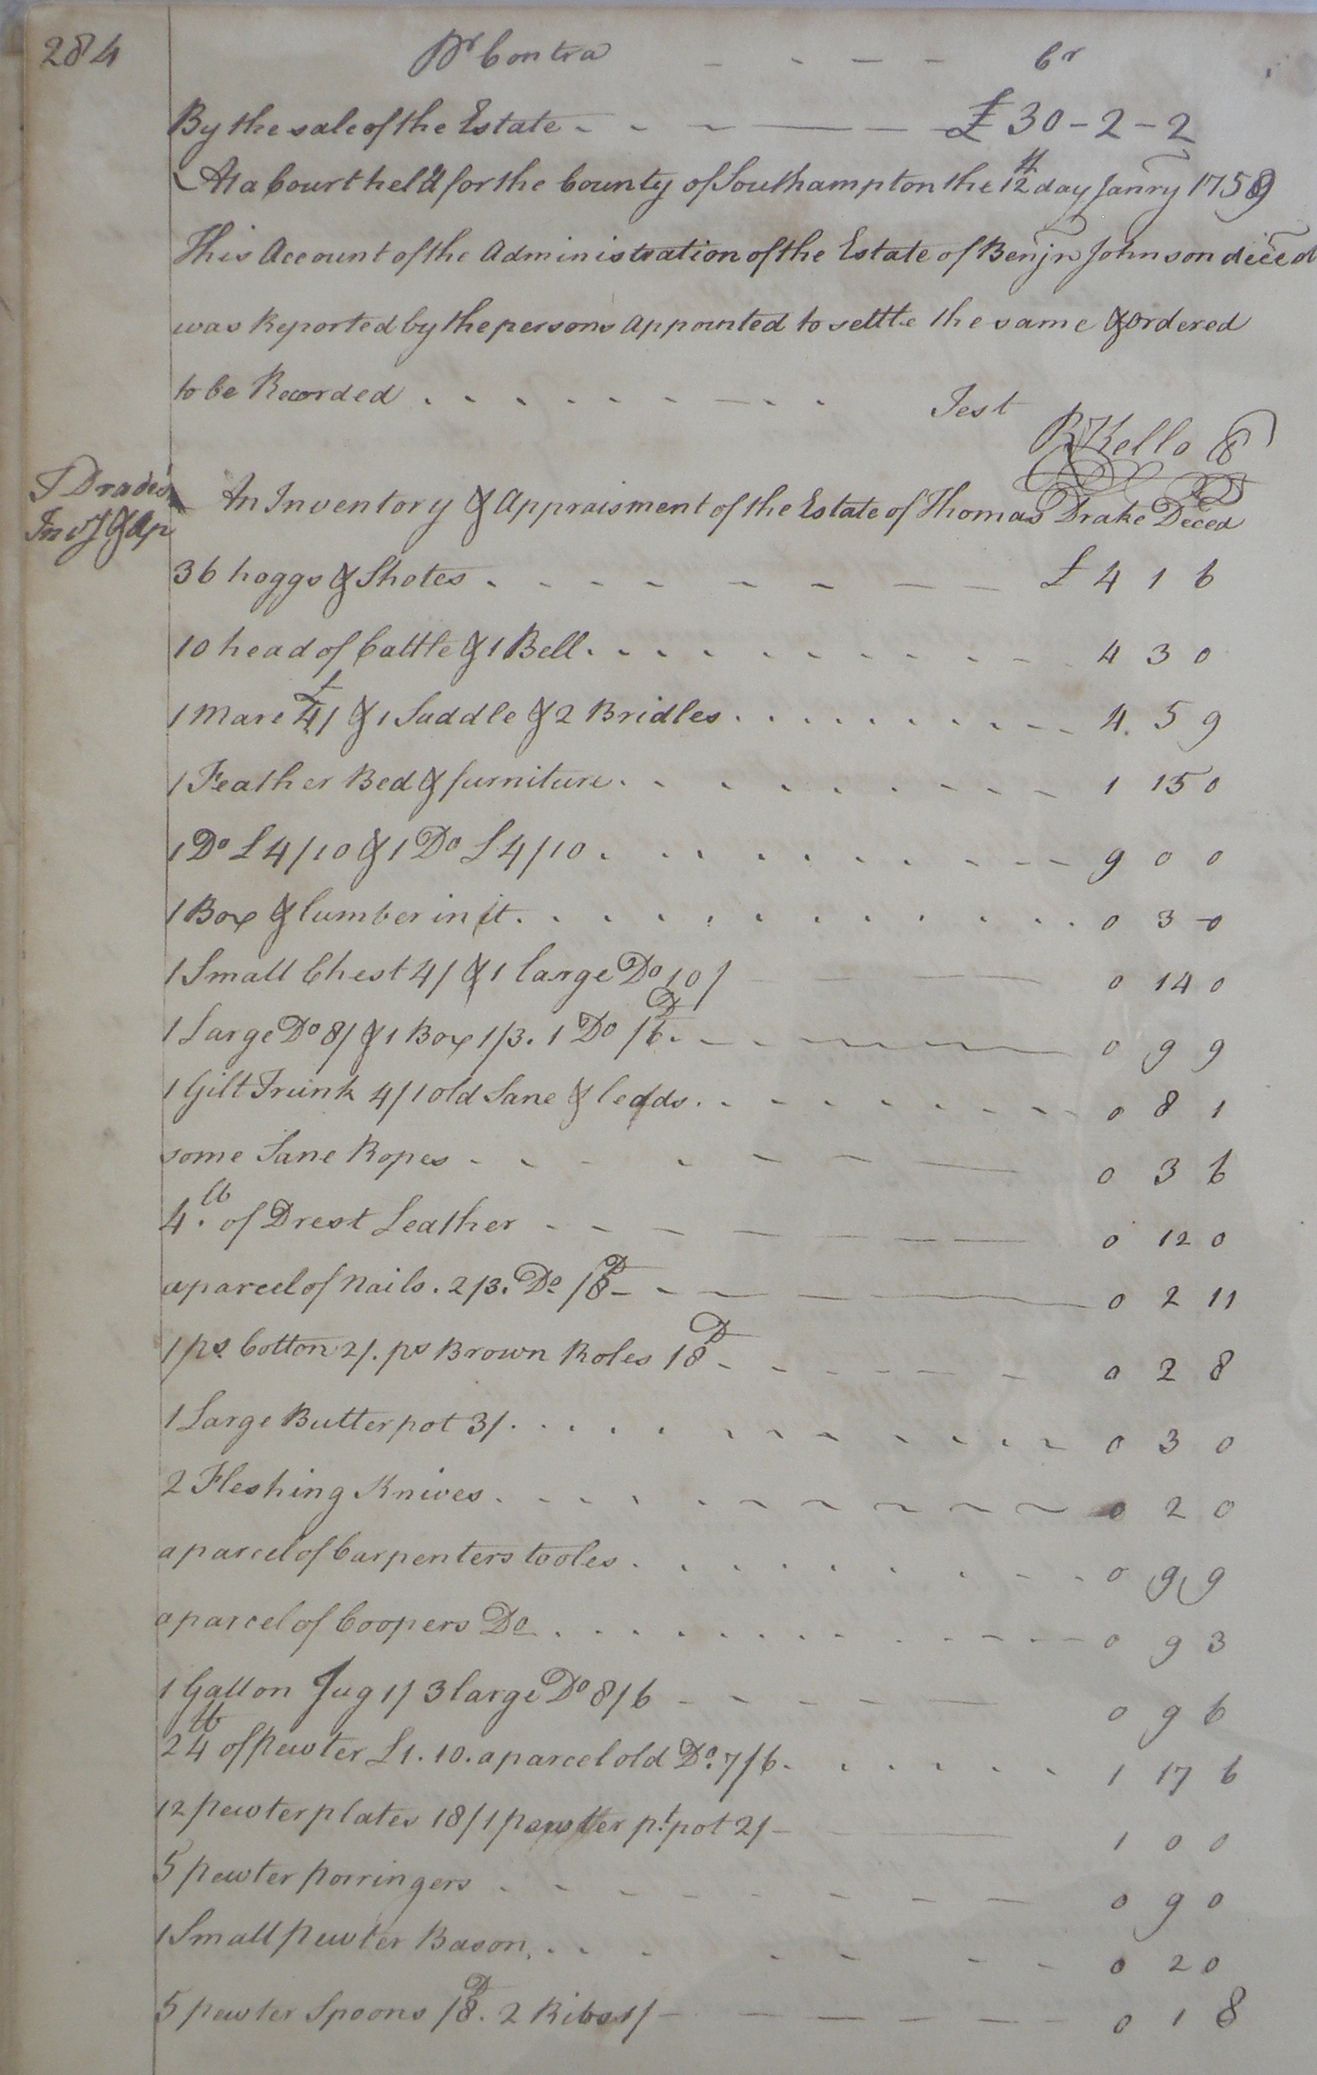 284
Pr Contra - - - - Cr
By the sale of the Estate - - - - £ 30 - 2 - 2
At a Court held for the County of Southampton the 12th day Janry 1758
This Account of the Administration of the Estate of Benjn Johnson deced
was Reported by the persons appointed to settle the same & Ordered
to be Recorded . . . . . . . Test
R Kello
T Drakes
Invy & Ap
An Inventory & Appraisment of the Estate of Thomas Drake Deced
36 hoggs & Shotes . . . . £ 4 1 6
10 head of Cattle & 1 Bell . . . . 4 3 0
1 Mare £4/ & 1 Saddle & 2 Bridles . . . . 4 5 9
1 Feather Bed & furniture . . . . 1 15 0
1 Do £4/10 & 1 Do £4/10 . . . . 9 0 0
1 Box & lumber in it . . . . 0 3 0
1 Small Chest 4/ & 1 large Do 10/ 0 14 0
1 Large Do 8/ & 1 Box 1/3. 1 Do /6D . . . . 0 9 9
1 Gilt Trunk 4/ 1 old Sane & leads . . . . 0 8 1
some Sane Ropes . . . . 0 3 6
4 lb. of Drest Leather . . . . 0 12 0
a parcel of Nails. 2/3. Do /8D . . . . 0 2 11
1 ps. Cotton 2/. ps Brown Roles /8D . . . . 0 2 8
1 Large Butter pot 3/ . . . . 0 3 0
2 Fleshing Knives . . . . 0 2 0
a parcel of Carpenters tooles . . . . 0 9 9
a parcel of Coopers Do . . . . 0 9 3
1 Gallon Jug 1/ 3 large Do 8/6 . . . . 0 9 6
24 lb of Pewter £1. 10. a parcel old Do. 7/6 . . . . 1 17 6
12 pewter plates 18/ 1 pewter pt pot 2/ . . . . 1 0 0
5 pewter porringers . . . . 0 9 0
1 Small pewter Bason . . . . 0 2 0
5 pewter Spoons /8D. 2 Ribs 1/ . . . . 0 1 8